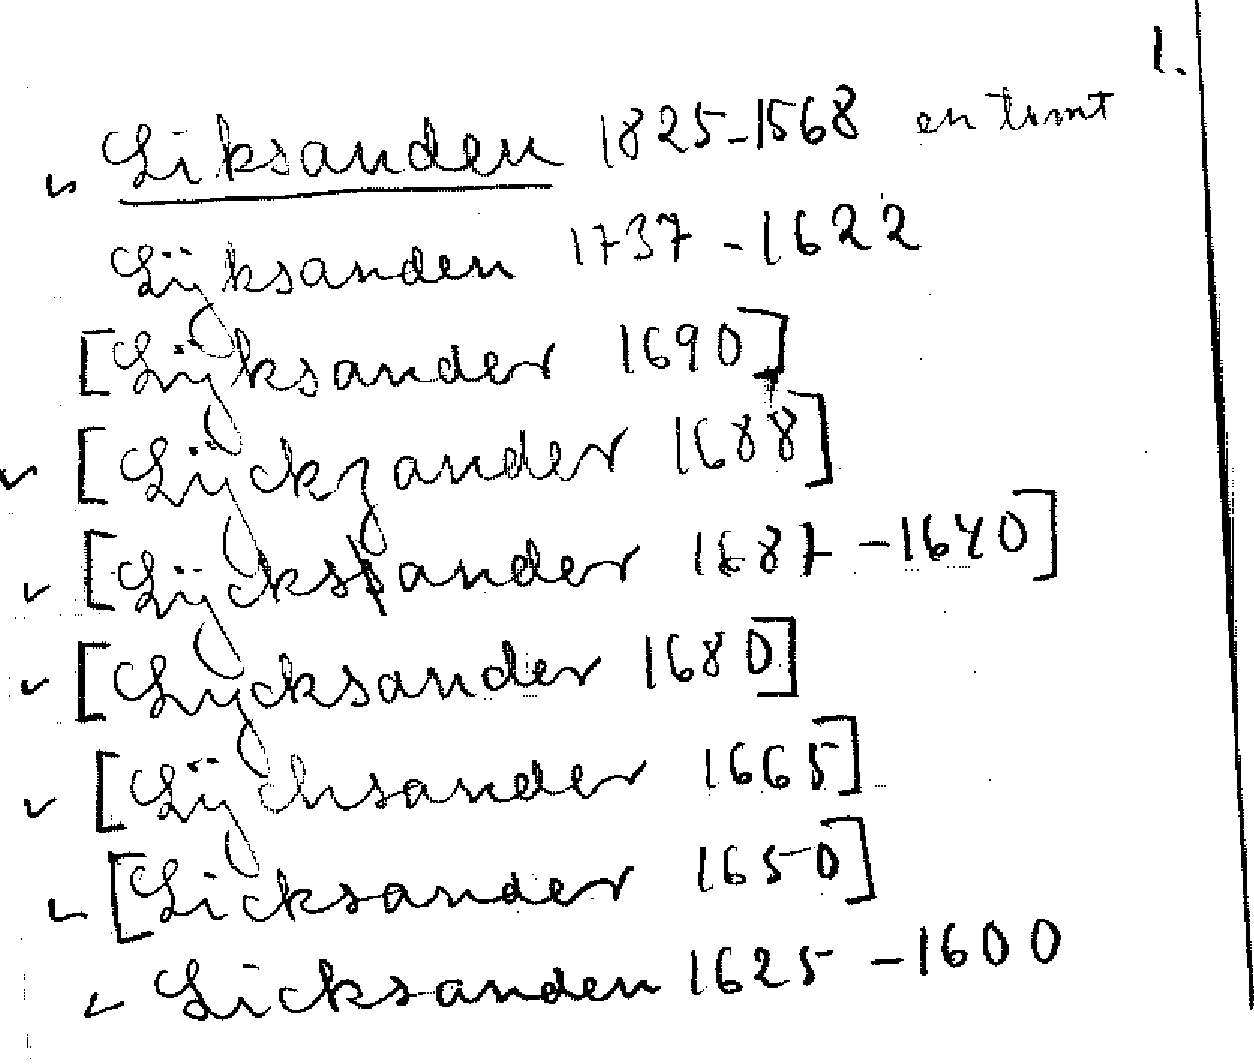 1.
Liksanden 1825-1568 en tomt
Lijksanden 1737-1622
[Lijksander 1690]
[Lijckzander 1688]
[Lijcksander 1687-1640]
[Lycksander 1680]
[Lijchsander 1665]
[Licksander 1650]
Licksanden 1625-1600